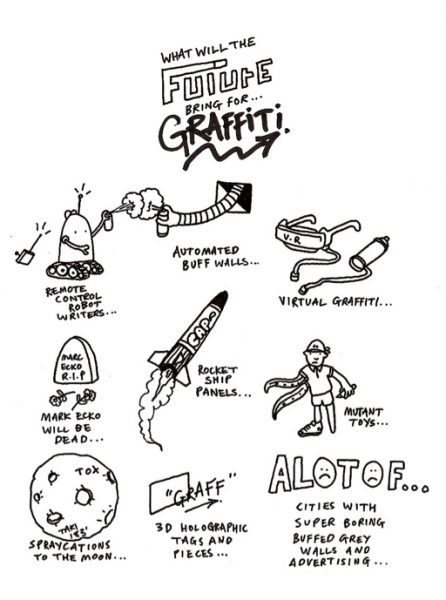 WHAT WILL THE
FUTURE
BRING FOR...
GRAFFITI.
V.R
REMOTE
CONTROL
ROBOT
WRITERS...
AUTOMATED
BUFF WALLS...
VIRTUAL GRAFFITI...
MARC
ECKO
R.I.P
MARK ECKO
WILL BE
DEAD...
CAPO
ROCKET
SHIP
PANELS...
MUTANT
TOYS...
TOX
TAKI
183'
SPRAYCATIONS
TO THE MOON...
"GRAFF"
3D HOLOGRAPHIC
TAGS AND
PIECES...
ALOTOF...
CITIES WITH
SUPER BORING
BUFFED GREY
WALLS AND
ADVERTISING...